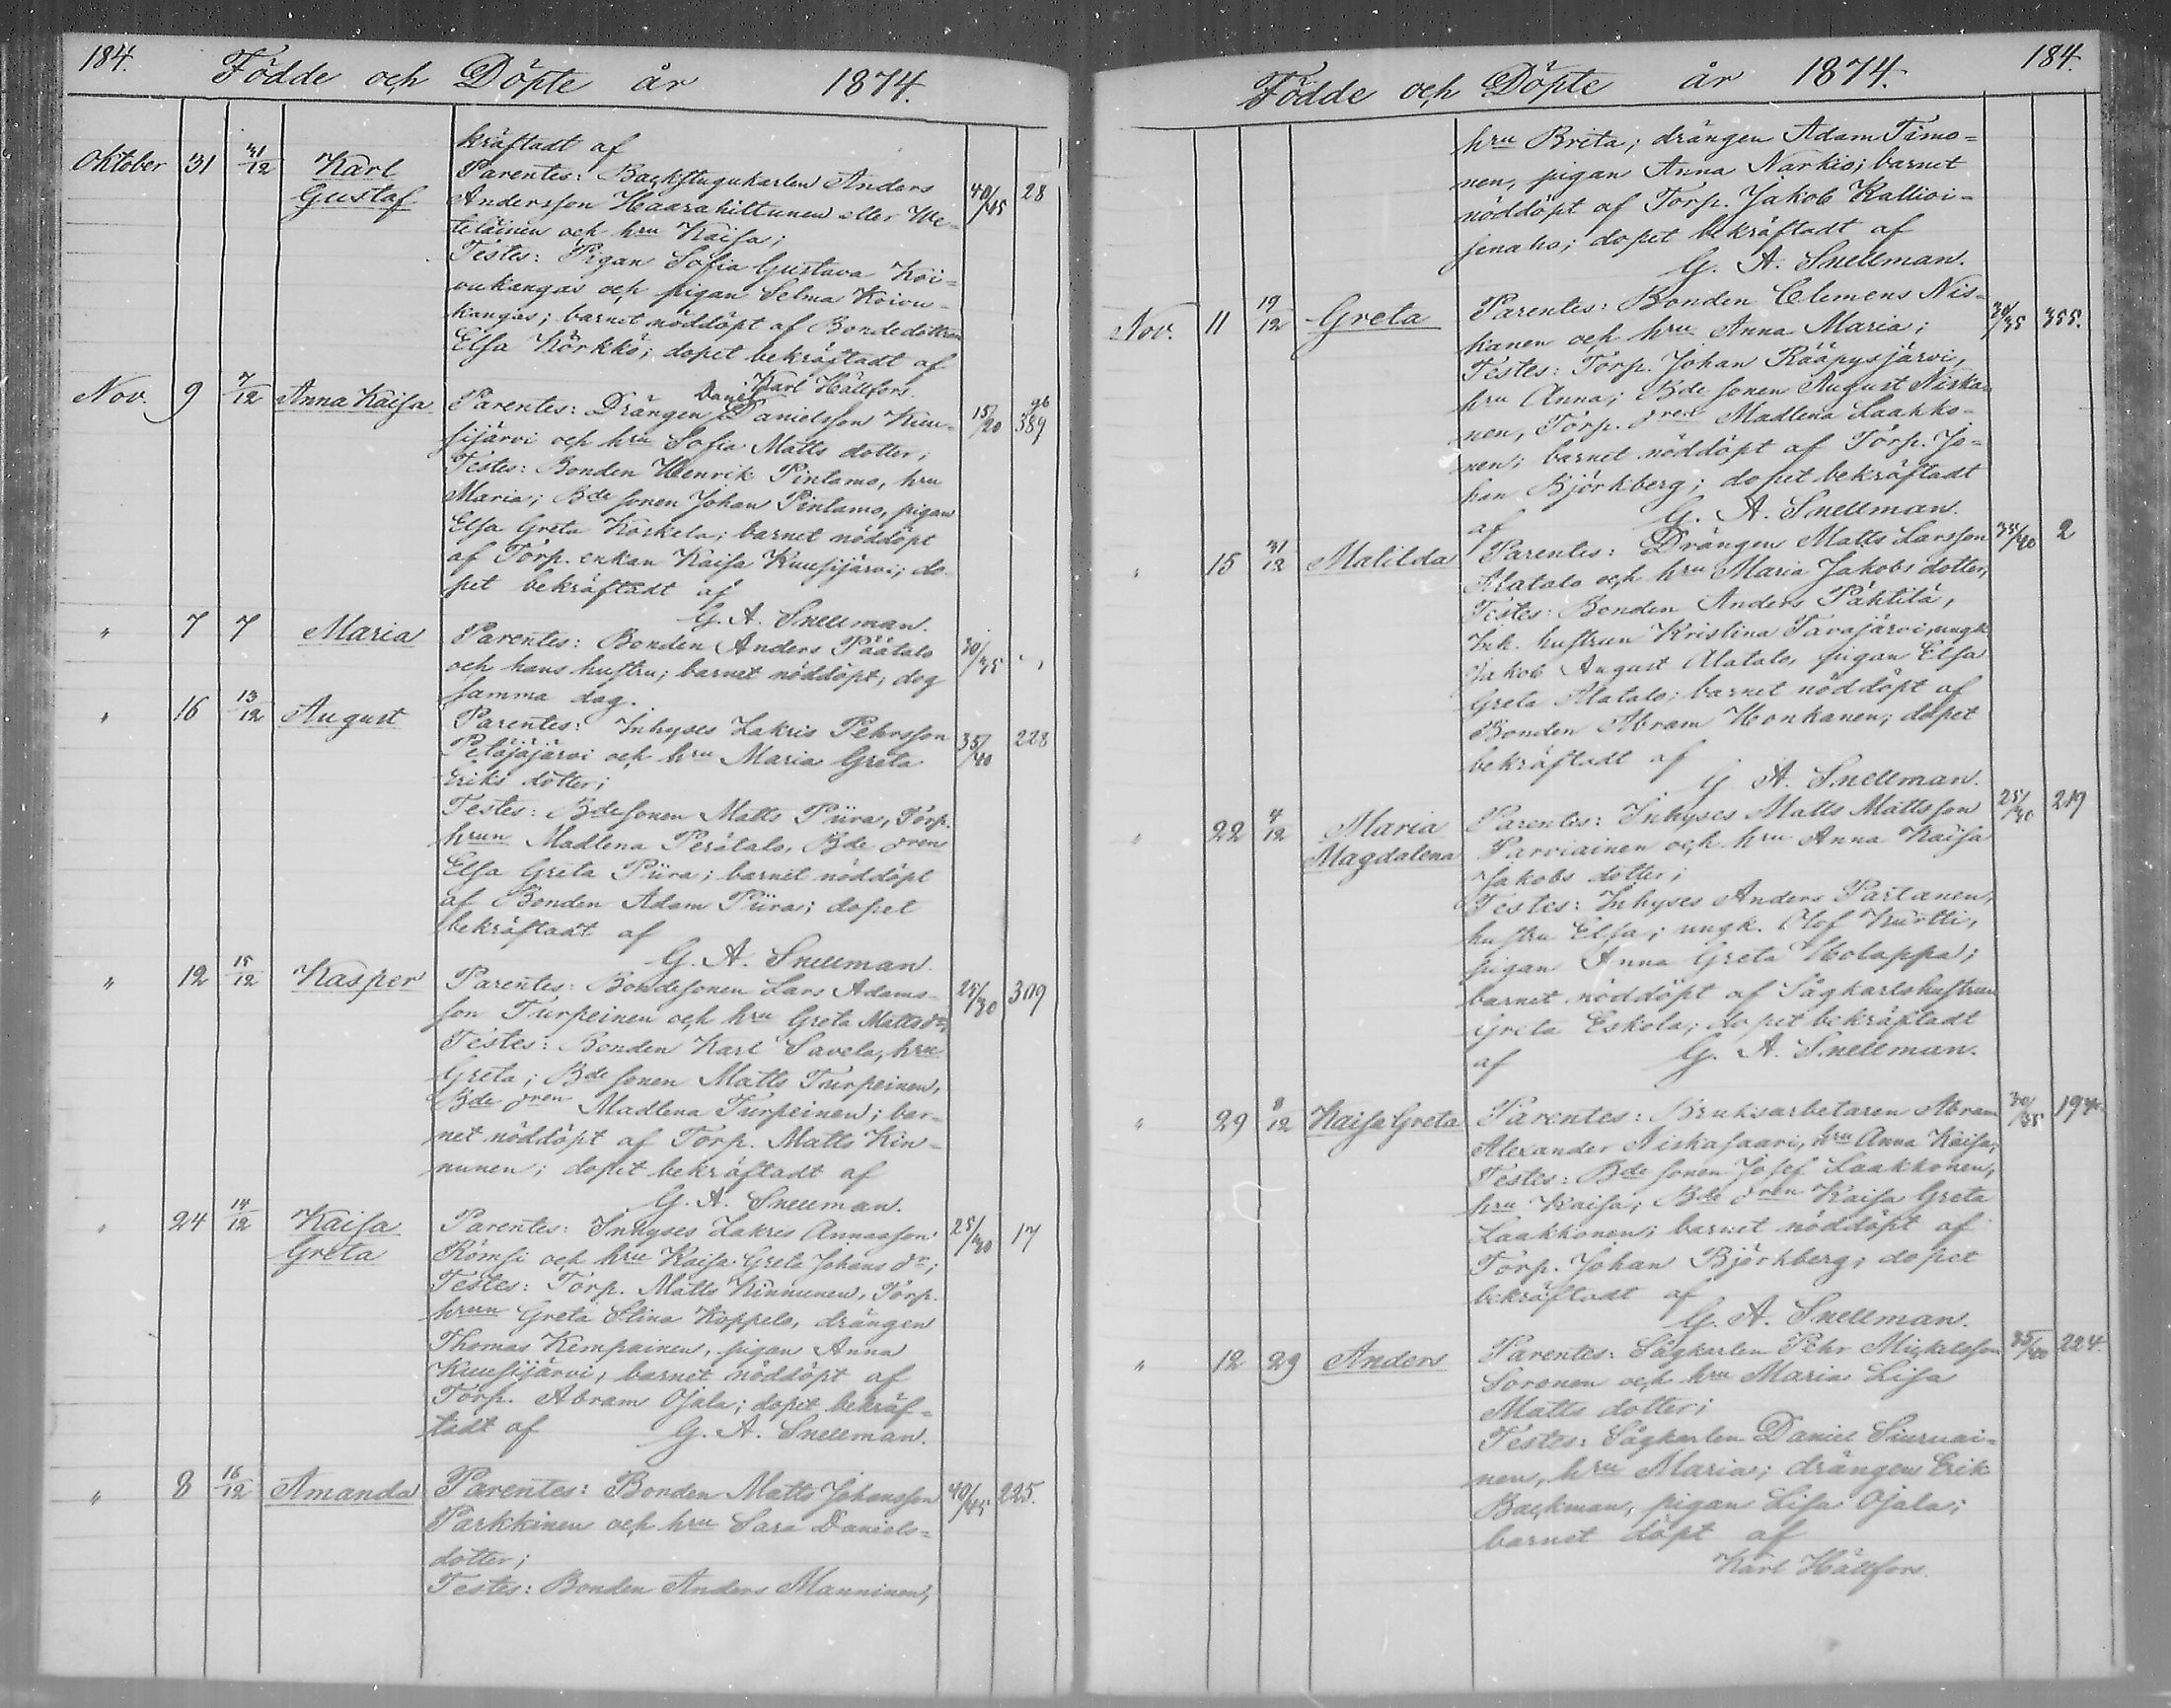 184.
Födde och Döpte år 1874.
kräftadt af
Oktober 31 31/12 Karl Gustaf
Parentes: Backstugukarlen Anders
Andersson Haarahiltunen eller We-
teläinen och hru Kaisa;
40/45 28
Testes: Pigan Sofia Gustava Koi-
vukangas och pigan Selma Koivu-
kangas; barnet nöddöpt af Bondedottren
Elsa Körkkö; dopet bekräftadt af
Karl Hällfors.
Nov. 9 7/12 Anna Kaisa
Parentes: Drängen Daniel Danielsson Kuu-
sijärvi och hru Sofia Matts dotter;
15/20 96 389
Testes: Bonden Henrik Pintamo, hru
Maria; Bde sonen Johan Pintamo, pigan
Elsa Greta Koskela; barnet nöddöpt
af Torp. enkan Kaisa Kuusijärvi; do-
pet bekräftadt af
G. A. Snellman.
" 7 7 Maria
Parentes: Bonden Anders Päätalo
och hans hustru; barnet nöddöpt; dog
samma dag.
30/35
" 16 13/12 August
Parentes: Inhyses Zakris Pehrsson
Petäjäjärvi och hru Maria Greta
Eriks dotter;
35/40 228
Testes: Bde sonen Matts Piira, Torp.
hrun Madlena Perätalo, Bde dren
Elsa Greta Piira; barnet nöddöpt
af Bonden Adam Piira; dopet
bekräftadt af
G. A. Snellman.
" 12 15/12 Kasper
Parentes: Bondesonen Lars Adams-
son Turpeinen och hru Greta Matts dr;
25/30 309
Testes: Bonden Karl Savela, hru
Greta; Bde sonen Matts Turpeinen,
Bde dren Madlena Turpeinen; bar-
net nöddöpt af Torp. Matts Kin-
nunen; dopet bekräftadt af
G. A. Snellman.
" 24 14/12 Kaisa Greta
Parentes: Inhyses Zakris Annasson
Römsi och hru Kaisa Greta Johans dr;
25/30 17
Testes: Torp. Matts Kinnunen, Torp.
hrun Greta Stina Koppelo, drängen
Thomas Kempainen, pigan Anna
Kuusijärvi; barnet nöddöpt af
Torp. Abram Ojala; dopet bekräf-
tadt af G. A. Snellman.
" 8 16/12 Amanda
Parentes: Bonden Matts Johansson
Parkkinen och hru Sara Daniels-
dotter;
40/45 225.
Testes: Bonden Anders Manninen,
Födde och Döpte år 1874.
184.
hru Brita; drängen Adam Timo-
nen, pigan Anna Narkio; barnet
nöddöpt af Torp. Jakob Kallioi-
senaho; dopet bekräftadt af
G. A. Snellman.
Nov. 11 19/12 Greta
Parentes: Bonden Clemens Nis-
kanen och hru Anna Maria;
30/35 355.
Testes: Torp. Johan Rääpysjärvi,
hru Anna; Bde sonen August Niska-
nen, Torp. dren Madlena Laakko-
nen; barnet nöddöpt af Torp. Jo-
han Björkberg; dopet bekräftadt
af G. A. Snellman.
" 15 31/12 Matilda
Parentes: Drängen Matts Larsson
Alatalo och hru Maria Jakobs dotter;
35/40 2
Testes: Bonden Anders Pähtilä,
Inh. hustrun Kristina Tavajärvi, ungk.
Jakob August Alatalo, pigan Elsa
Greta Alatalo; barnet nöddöpt af
Bonden Abram Honkanen; dopet
bekräftadt af
G. A. Snellman.
" 22 4/12 Maria Magdalena
Parentes: Inhyses Matts Mattsson
Parviainen och hru Anna Kaisa
Jakobs dotter;
25/30 219
Testes: Inhyses Anders Partanen,
hustru Elsa; ungk. Olof Kurtti,
pigan Anna Greta Holappa;
barnet nöddöpt af Sågkarlshustrun
Greta Eskola; dopet bekräftadt
af G. A. Snellman.
" 29 8/12 Kaisa Greta
Parentes: Bruksarbetaren Abram
Alexander Niskasaari, hru Anna Kaisa;
30/35 194
Testes: Bde sonen Josef Laakkonen,
hru Kaisa; Bde dren Kaisa Greta
Laakkonen; barnet nöddöpt af
Torp. Johan Björkberg; dopet
bekräftadt af
G. A. Snellman.
" 12 29 Anders
Parentes: Sågkarlen Pehr Mickelsson
Soronen och hru Maria Lisa
Matts dotter;
35/40 224.
Testes: Sågkarlen Daniel Siuruai-
nen, hru Maria; drängen Erik
Backman, pigan Lisa Ojala;
barnet döpt af
Karl Hällfors.